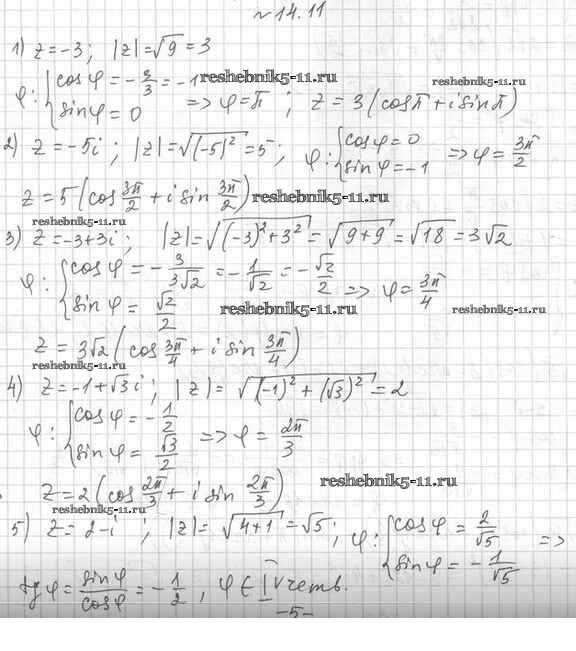 № 14.11
1) z = -3; |z| = √9 = 3
φ: { cos φ = -3/3 = -1 reshebnik5-11.ru
sin φ = 0 => φ = π; z = 3 (cos π + i sin π) reshebnik5-11.ru
2) z = -5i; |z| = √(-5)² = 5; φ: { cos φ = 0
sin φ = -1 => φ = 3π/2
z = 5 (cos 3π/2 + i sin 3π/2) reshebnik5-11.ru
reshebnik5-11.ru
3) z = -3+3i; |z| = √((-3)² + 3²) = √(9+9) = √18 = 3√2
φ: { cos φ = -3/(3√2) = -1/√2 = -√2/2
sin φ = √2/2 => φ = 3π/4 reshebnik5-11.ru reshebnik5-11.ru
z = 3√2 (cos 3π/4 + i sin 3π/4)
reshebnik5-11.ru
4) z = -1+√3 i; |z| = √((-1)² + (√3)²) = 2
φ: { cos φ = -1/2
sin φ = √3/2 => φ = 2π/3
z = 2 (cos 2π/3 + i sin 2π/3) reshebnik5-11.ru
reshebnik5-11.ru
5) z = 2-i; |z| = √(4+1) = √5; φ: { cos φ = 2/√5
sin φ = -1/√5 =>
tg φ = sin φ/cos φ = -1/2, φ ∈ IV четв.
-5-